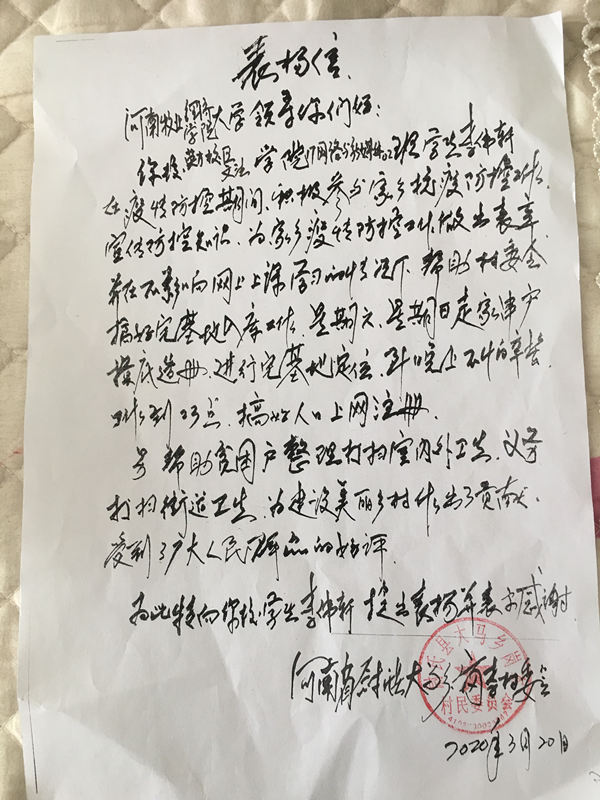 表扬信
河南牧业经济学院大学领导你们好：
你校 文法学院17网络与新媒体 班学生李伟轩
在疫情防控期间，积极参与家乡抗疫防控工作，
宣传防控知识，为家乡疫情防控工作做出表率
并在不影响网上上课学习的情况下，帮助村委会
搞好宅基地入库工作，星期六、星期日走家串户
摸底造册，进行宅基地定位，晚上
工作到23点，搞好人口上网注册。
帮助贫困户整理打扫室内外卫生，义务
打扫街道卫生，为建设美丽乡村作出了贡献，
受到了广大人民群众的好评。
为此特向你校学生李伟轩 提出表扬并表示感谢
河南省尉氏县大马乡岗李村委会
村民委员会
2020年3月20日